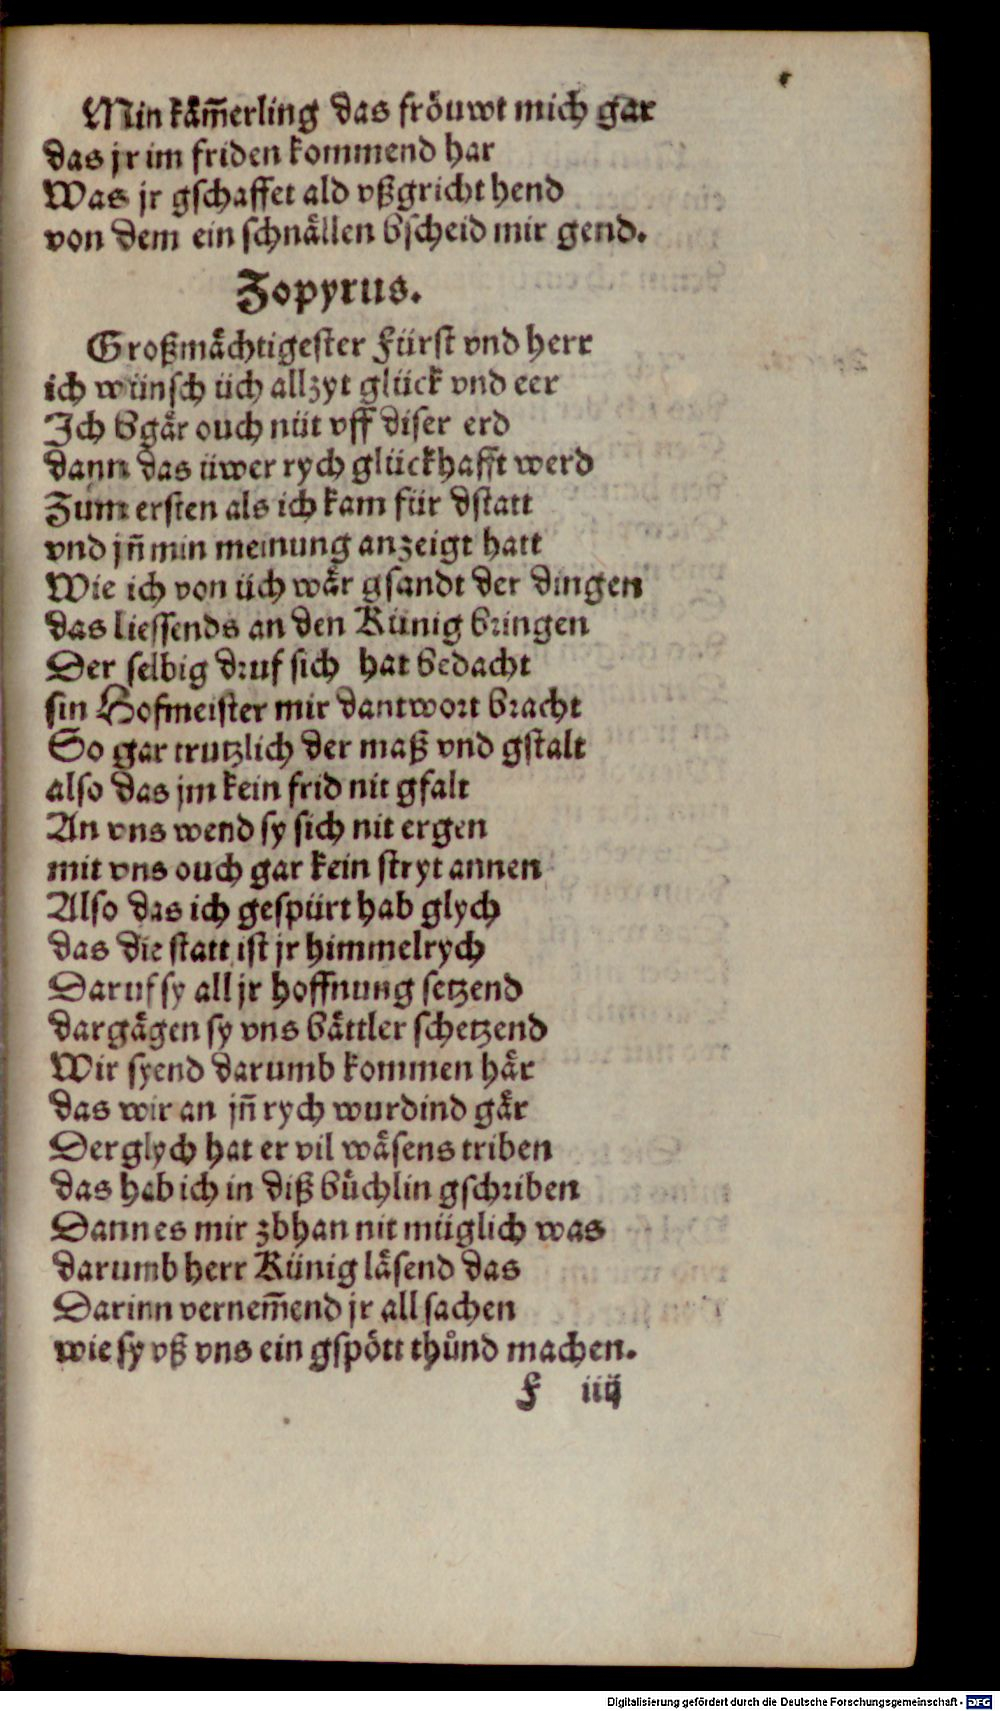 Min kaͤm̄erling das froͤuwt mich gar
das jr im friden kommend har
Was jr gschaffet ald vßgricht hend
von dem ein schnaͤllen bscheid mir gend.
Zopyrus.
Großmaͤchtigester Fürst vnd herr
ich wünsch üch allzyt glück vnd eer
Ich bgaͤr ouch nüt vff diser erd
dann das üwer rych glückhafft werd
Zum ersten als ich kam für dstatt
vnd jn̄ min meinung anzeigt hatt
Wie ich von üch waͤr gsandt der dingen
das liessends an den Künig bringen
Der selbig druf sich hat bedacht
sin Hofmeister mir dantwort bracht
So gar trutzlich der maß vnd gstalt
also das jm kein frid nit gfalt
An vns wend sy sich nit ergen
mit vns ouch gar kein stryt annen
Also das ich gespürt hab glych
das die statt ist jr himmelrych
Daruf sy all jr hoffnung setzend
dargaͤgen sy vns baͤttler schetzend
Wir syend darumb kommen haͤr
das wir an jn̄ rych wurdind gaͤr
Derglych hat er vil waͤsens triben
das hab ich in diß buͤchlin gschriben
Dann es mir zbhan nit müglich was
darumb herr Künig laͤsend das
Darinn vernem̄end jr all sachen
wie sy vß vns ein gspoͤtt thuͦnd machen.
F iiij
Digitalisierung gefördert durch die Deutsche Forschungsgemeinschaft - DFG